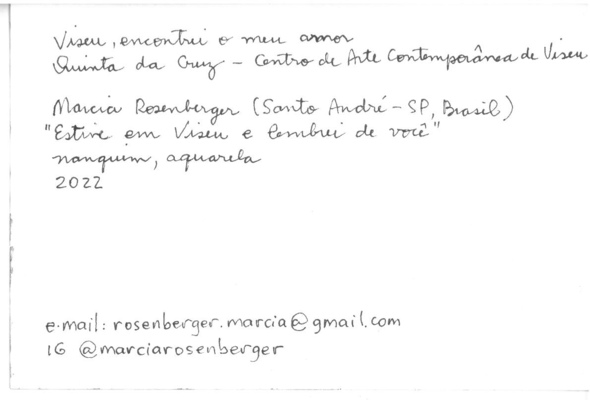 Viseu, encontrei o meu amor
Quinta da Cruz - Centro de Arte Contemporânea de Viseu
Marcia Rosenberger (Santo André - SP, Brasil)
"Estive em Viseu e lembrei de você"
nanquim, aquarela
2022
e-mail: rosenberger.marcia@gmail.com
IG @marciarosenberger